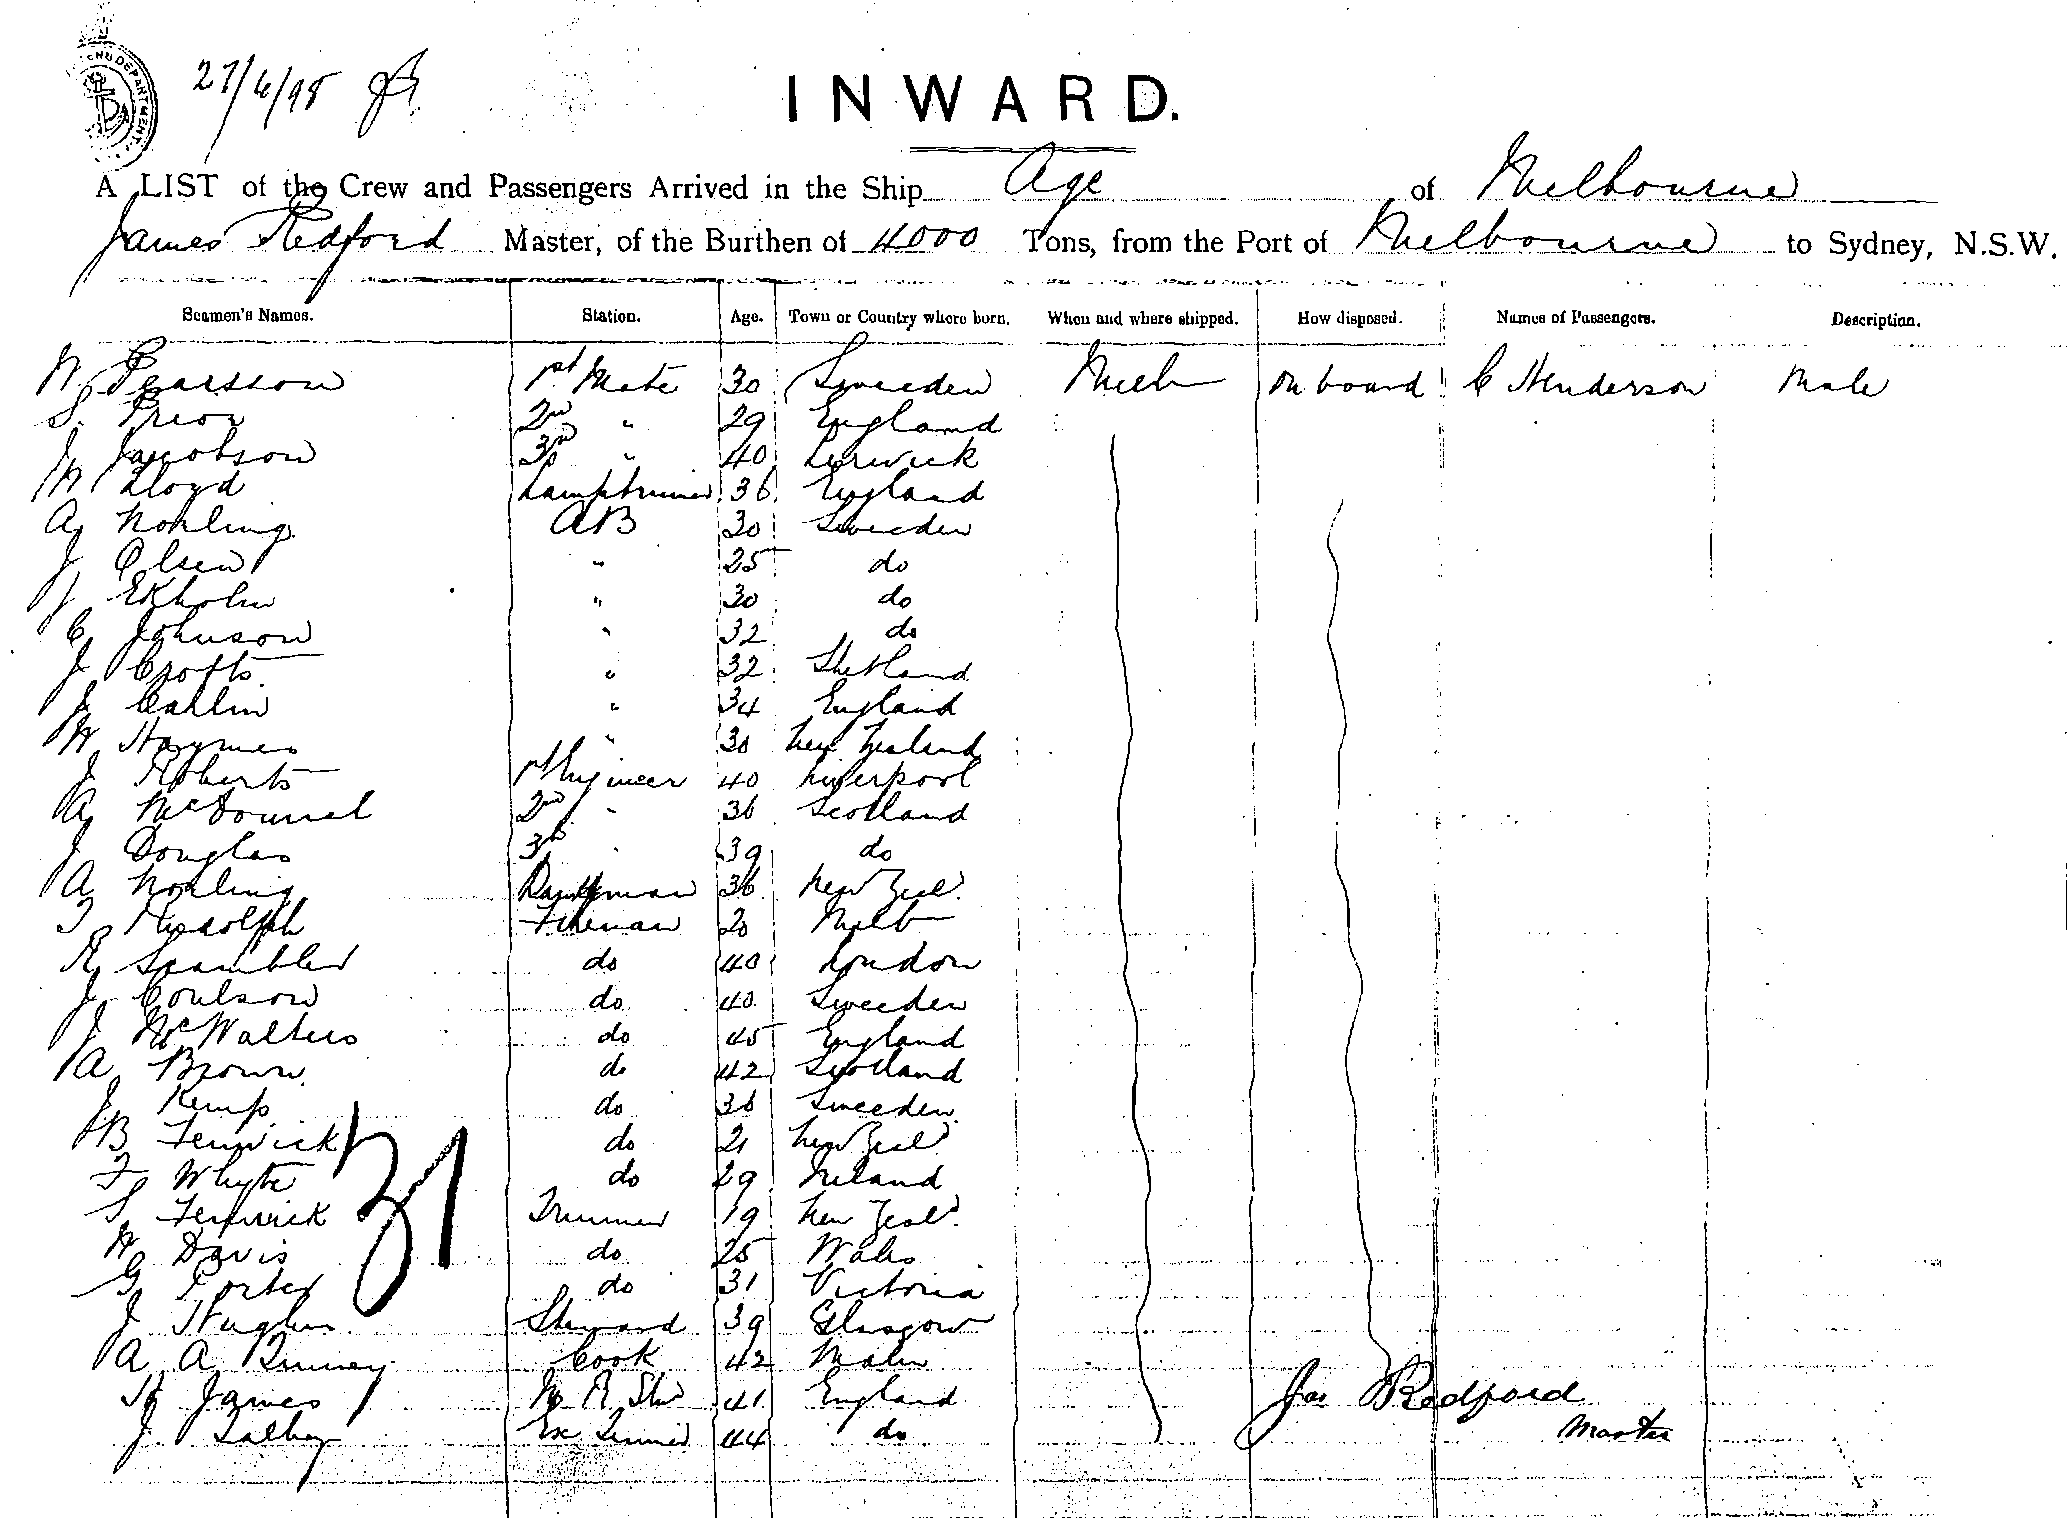 27/6/98
INWARD.
A LIST of the Crew and Passengers Arrived in the Ship Age of Melbourne
James Redford Master, of the Burthen of 4000 Tons, from the Port of Melbourne to Sydney, N.S.W.
Seamen's Names. Station. Age. Town or Country where born. When and where shipped. How disposed. Names of Passengers. Description.
N Pearsson 1st Mate 30 Sweeden Melb on board C Henderson Male
S. Prior 2nd " 29 England
J Jacobson 3rd " 40 Lerwick
W Lloyd Lamptrimmer 36 England
A Norling AB 30 Sweeden
J Olsen " 25 do
J Ekholm " 30 do
C Johnson " 32 do
J Crofts " 32 Shetland
J Carlin " 34 England
W Haymes " 30 New Zealand
J Roberts 1st Engineer 40 Liverpool
A McDonnel 2nd " 36 Scotland
J Douglas 3rd " 39 do
A Norling Donkyman 36 New Zeal.
T Rudolph Fireman 20 Melb
R Scambler do 40 London
J Coulson do 40 Sweeden
J McWalters do 45 England
A Brown do 42 Scotland
J Kemp do 36 Sweeden
B Fenwick do 21 New Zeal
F Whyte do 29 Ireland
S Fenwick Trimmer 19 New Zeal.
H Davis do 25 Wales
G Porter do 31 Victoria
J Hughes Steward 39 Glasgow
A A Binney Cook 42
H James 41 England Jas Redford
J 44 do Master
31